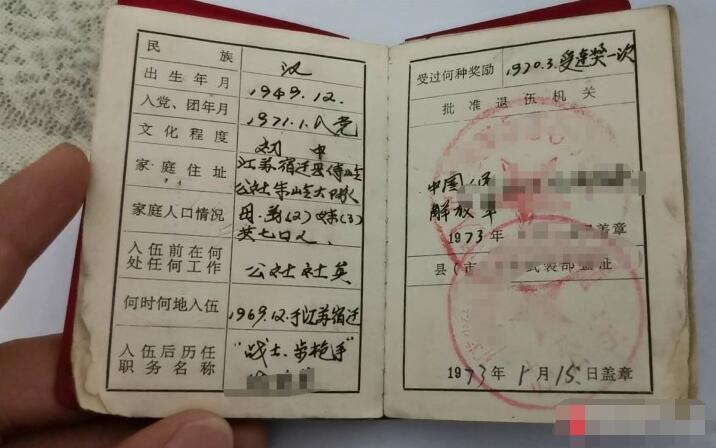 民族 汉
出生年月 1949.12.
入党、团年月 1971.1.入党
文化程度 初中
家庭住址 江苏宿迁县傅山
公社朱山大队
家庭人口情况 母.弟(2)妹(3)
共七口人
入伍前在何
处任何工作 公社社员
何时何地入伍 1969.12.于江苏宿迁
入伍后历任
职务名称 "战士.步枪手"
受过何种奖励 1970.3.受连奖一次
批准退伍机关
中国人民
解放军
1973年 盖章
县(市 武装部 址
1973年1月15日盖章